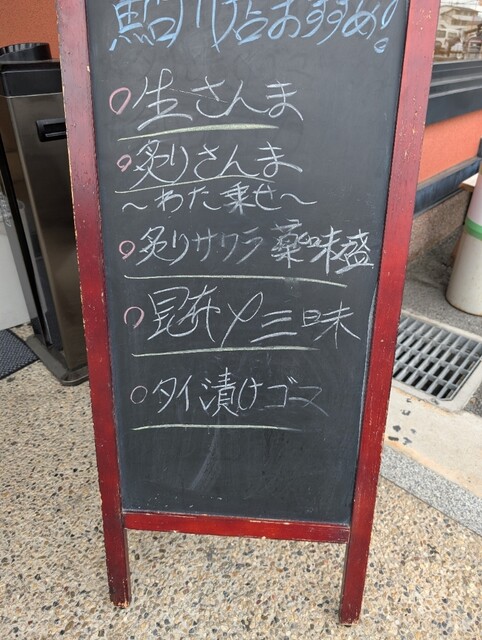 鮎川店おすすめ!
○生さんま
○炙りさんま
〜わた乗せ〜
○炙りサワラ薬味盛
○昆布〆三昧
○タイ漬けゴマ